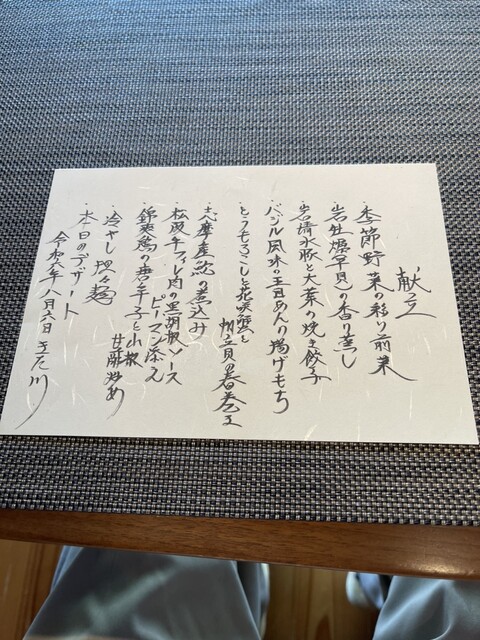 献立
・季節野菜の彩り前菜
・岩牡蠣早煮の香り蒸し
・岩清水豚と大葉の焼き餃子
・バジル風味の玉子めんの揚げもち
・とうもろこしと
帆立貝の春巻
・志摩産鮑の煮込み
・松阪牛フィレ肉の黒胡椒ソース
ピーマン添え
・錦爽鶏の唐辛子と山椒
甘酢炒め
・冷やし担々麺
・本日のデザート
令和六年八月六日